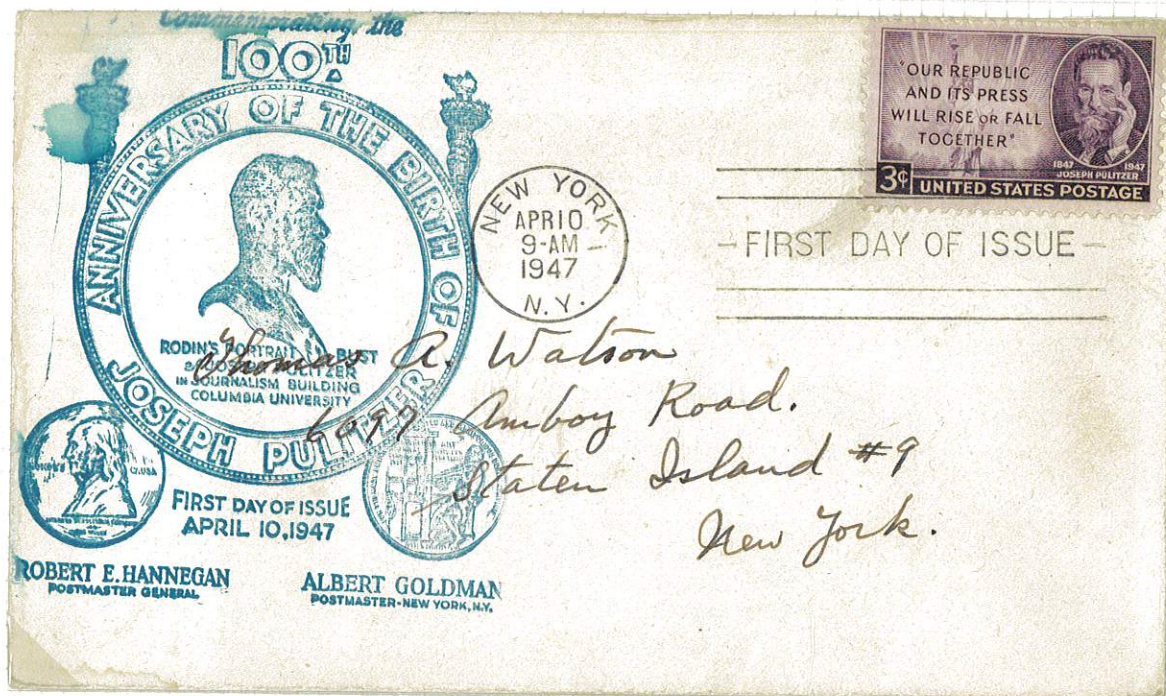 Commemorating the
100TH
ANNIVERSARY OF THE BIRTH OF
JOSEPH PULITZER
RODIN'S PORTRAIT BUST
JOSEPH PULITZER
IN JOURNALISM BUILDING
COLUMBIA UNIVERSITY
FIRST DAY OF ISSUE
APRIL 10, 1947
ROBERT E. HANNEGAN
POSTMASTER GENERAL
ALBERT GOLDMAN
POSTMASTER-NEW YORK, N.Y.
NEW YORK 1
APR 10
9-AM
1947
N.Y.
"OUR REPUBLIC
AND ITS PRESS
WILL RISE OR FALL
TOGETHER"
1847 1947
JOSEPH PULITZER
3¢ UNITED STATES POSTAGE
-FIRST DAY OF ISSUE-
Thomas A. Watson
6097 Amboy Road.
Staten Island #9
New York.